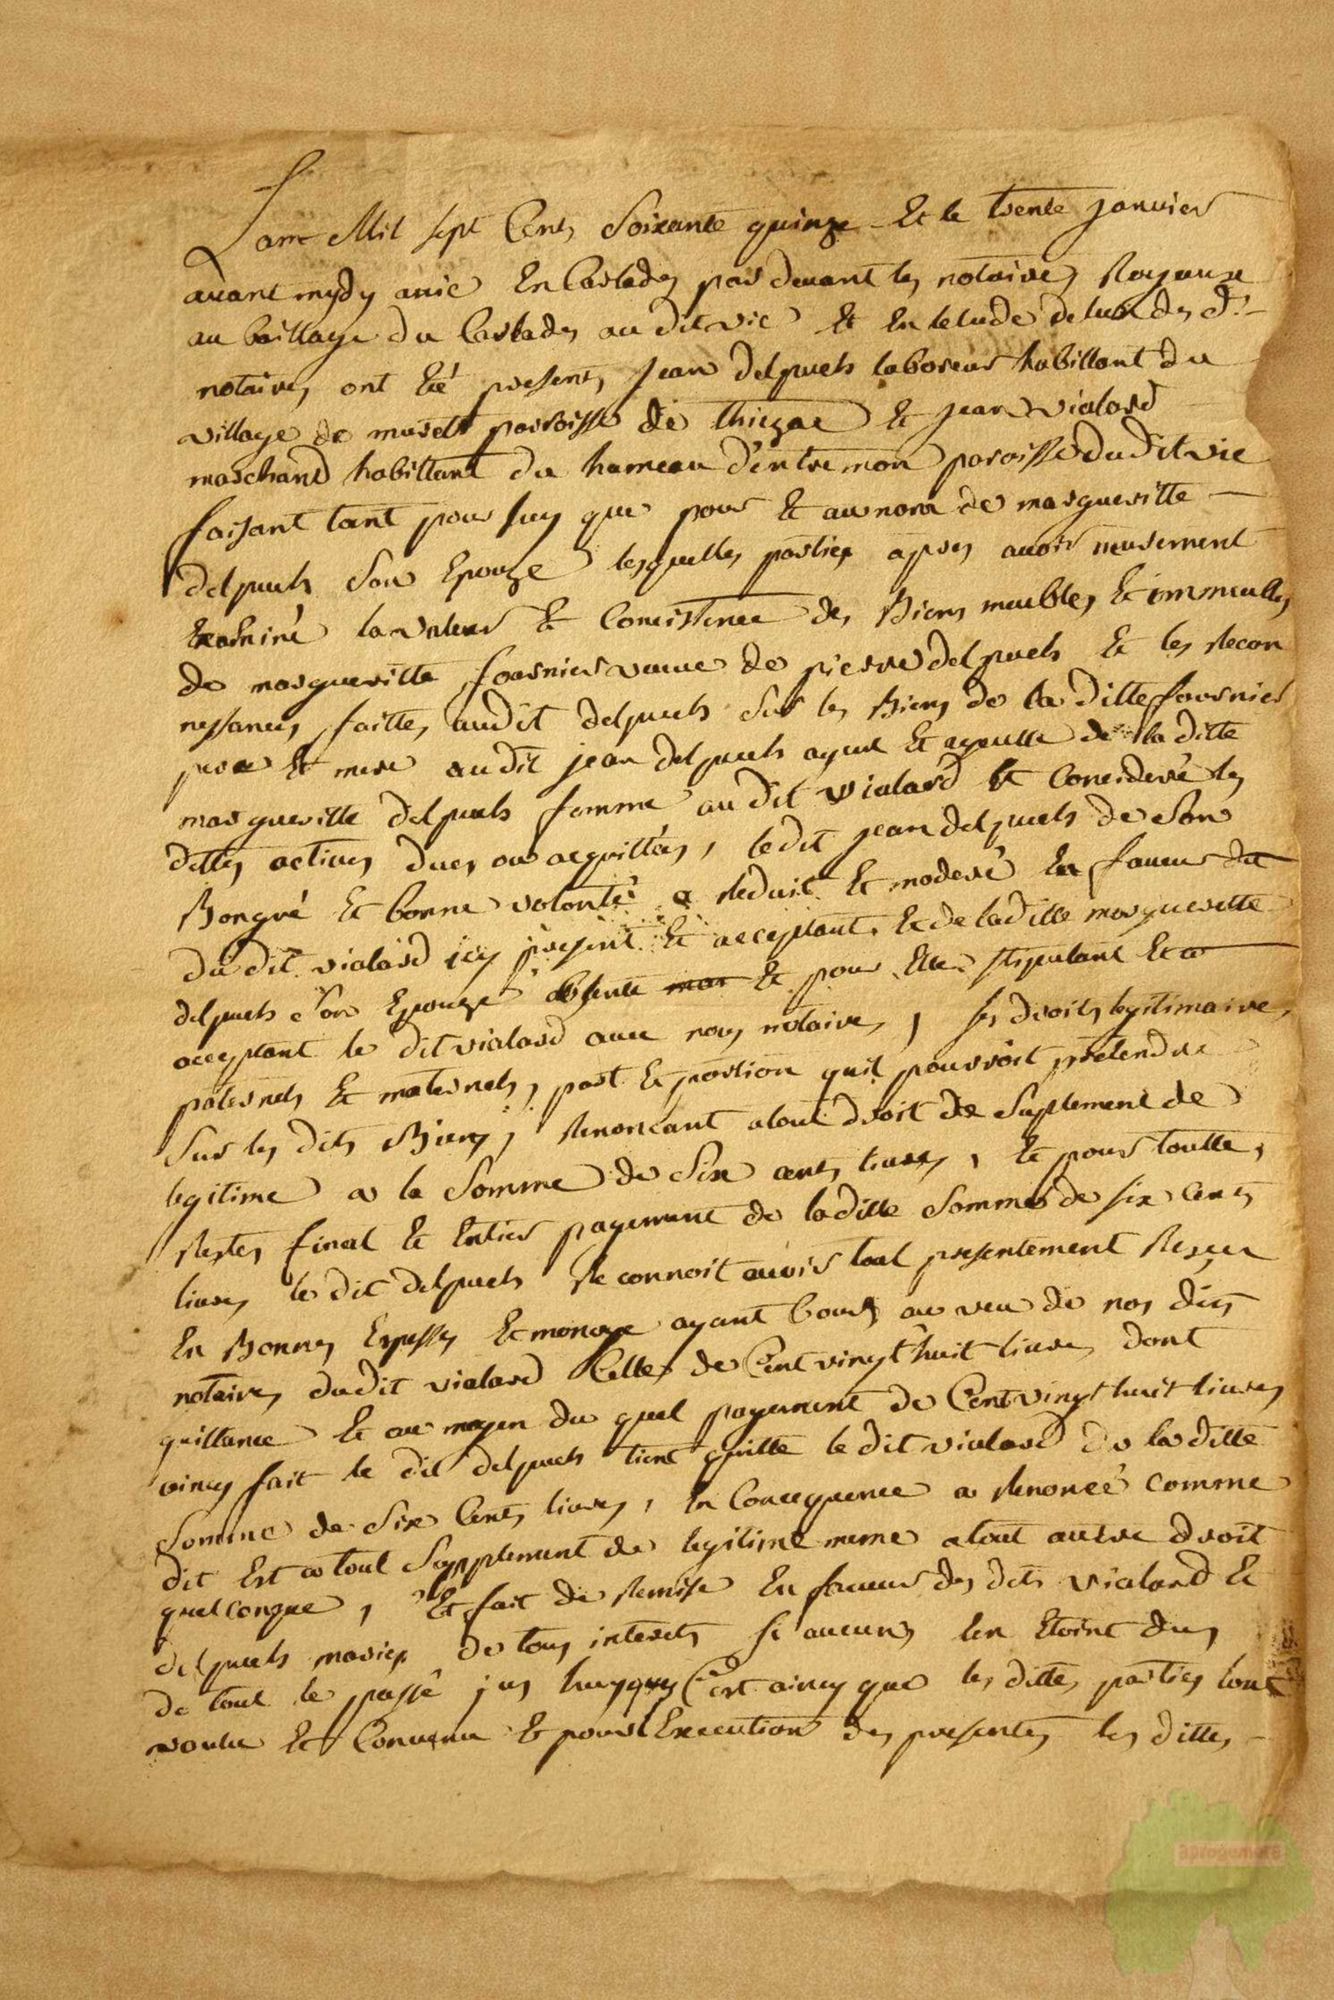 Lan Mil sept Cents Soixante quinze Et le trente janvier
avant mydy a vic En Carlades par devant les notaires Royaux
au bailliage du Carlades audit vic Et En letude de lun des d.
notaires ont Eté presents Jean delpuech laboreur habittant du
village de muret paroisse de thiezac Et jean vialard
marchand habittant du hameau d'entremon paroisse dudit vic
faisant tant pour luy que pour Et au nom de margueritte
delpuech Son Epouze lesquelles parties apres avoir meurement
Examiné la valeur Et Concistence des Biens meubles Et immeubles
de margueritte fournier veuve de pierre delpuech Et les Recon
nessances faittes audit delpuech Sur les Biens de la ditte fournier
pere Et mere audit jean delpuech ayeul Et ayeulle de la ditte
margueritte delpuech femme audit vialard Et Concideré les
dettes actives dues ou acquittées, ledit jean delpuech de Son
Bongré Et bonne volonté a Reduit Et moderé En faveur
dudit vialard icy present Et acceptant Et de laditte marguerette
delpuech Son Epouze absente Et pour Elle stipulant Et
acceptant le dit vialard avec nous notaires, les droits legitimaires
paternels Et maternels, part Et portion quil pourroit pretendre
Sur les dits Biens, Renonceant a tout droit de Suplement de
legitime a la Somme de Six cents livres, Et pour toutte,
Restes final Et Entier payement de laditte Somme de six Cents
livres le dit delpuech Reconnoit avoir tout presentement Reçeu
En Bonnes Espesses Et monoye ayant Cours au veu de nos dits
notaires dudit vialard Celle de Cent vingt huit livres dont
quittance Et au moyen du quel payement de Cent vingt huit livres
aincy fait le dit delpuech tient quitte le dit vialard de la ditte
Somme de Six Cents livres, En Concequence a Renoncé comme
dit Est a tout Supplement de legitime meme a tout autre droit
quelconque, Et fait de Remise En faveur des dits vialard Et
delpuech maries de tous interets Si aucuns len Etoint dus
de tout le passé jus huyques C'est aincy que les dittes parties lont
voulu Et Convenu Et pour lExecution des presentes les dittes
aprogemere